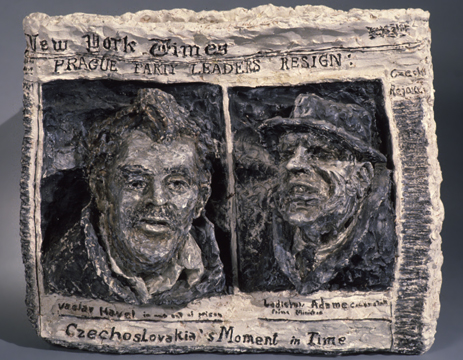 New York Times
PRAGUE PARTY LEADERS RESIGN:
Czechs
Rejoice
Vaclav Havel in and out of prison
Ladislav Adamec
Prime Minister
Czechoslovakia's Moment in Time